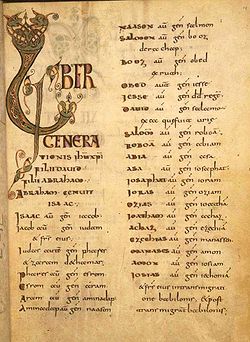 LIBER
GENERA
TIONIS IHU XPI
FILII DAVID
FILII ABRAHAE
ABRAHAM GENUIT
ISAAC.
ISAAC aū gēn iacob
Iacob aū gēn iudam
& fr̄s eius
Iudas aū gēn phares
& zaram de thamar
Phares aū gēn esrom
Esrom aū gēn aram
Aram aū gēn aminadap
Aminadap aū gēn naason
NAASON aū gēn salmon
SALMON aū gēn booz
de rachab
BOOZ aū gēn obed
ex ruth
OBED aū gēn iesse
IESSE aū gēn dd regē
DAVID aū gēn salomo
ex ea quae fuit uriae
SALOMO aū gēn roboā
ROBOA aū gēn abiam
ABIA aū gēn asa
ASA aū gēn iosaphat
IOSAPHAT aū gēn ioram
IORAS aū gēn oziam
OZIAS aū gēn ioatham
IOATHAM aū gēn achaz
ACHAZ aū gēn ezechia
EZECHIAS aū gēn manassen
MANASSES aū gēn amon
AMON aū gēn iosiam
IOSIAS aū gēn iechonia
& fr̄s eius in transmigrat
ione babilonis & post
transmigrat babilonis